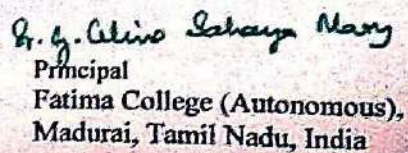 Sr. G. Celine Sahaya Mary
Principal
Fatima College (Autonomous),
Madurai, Tamil Nadu, India